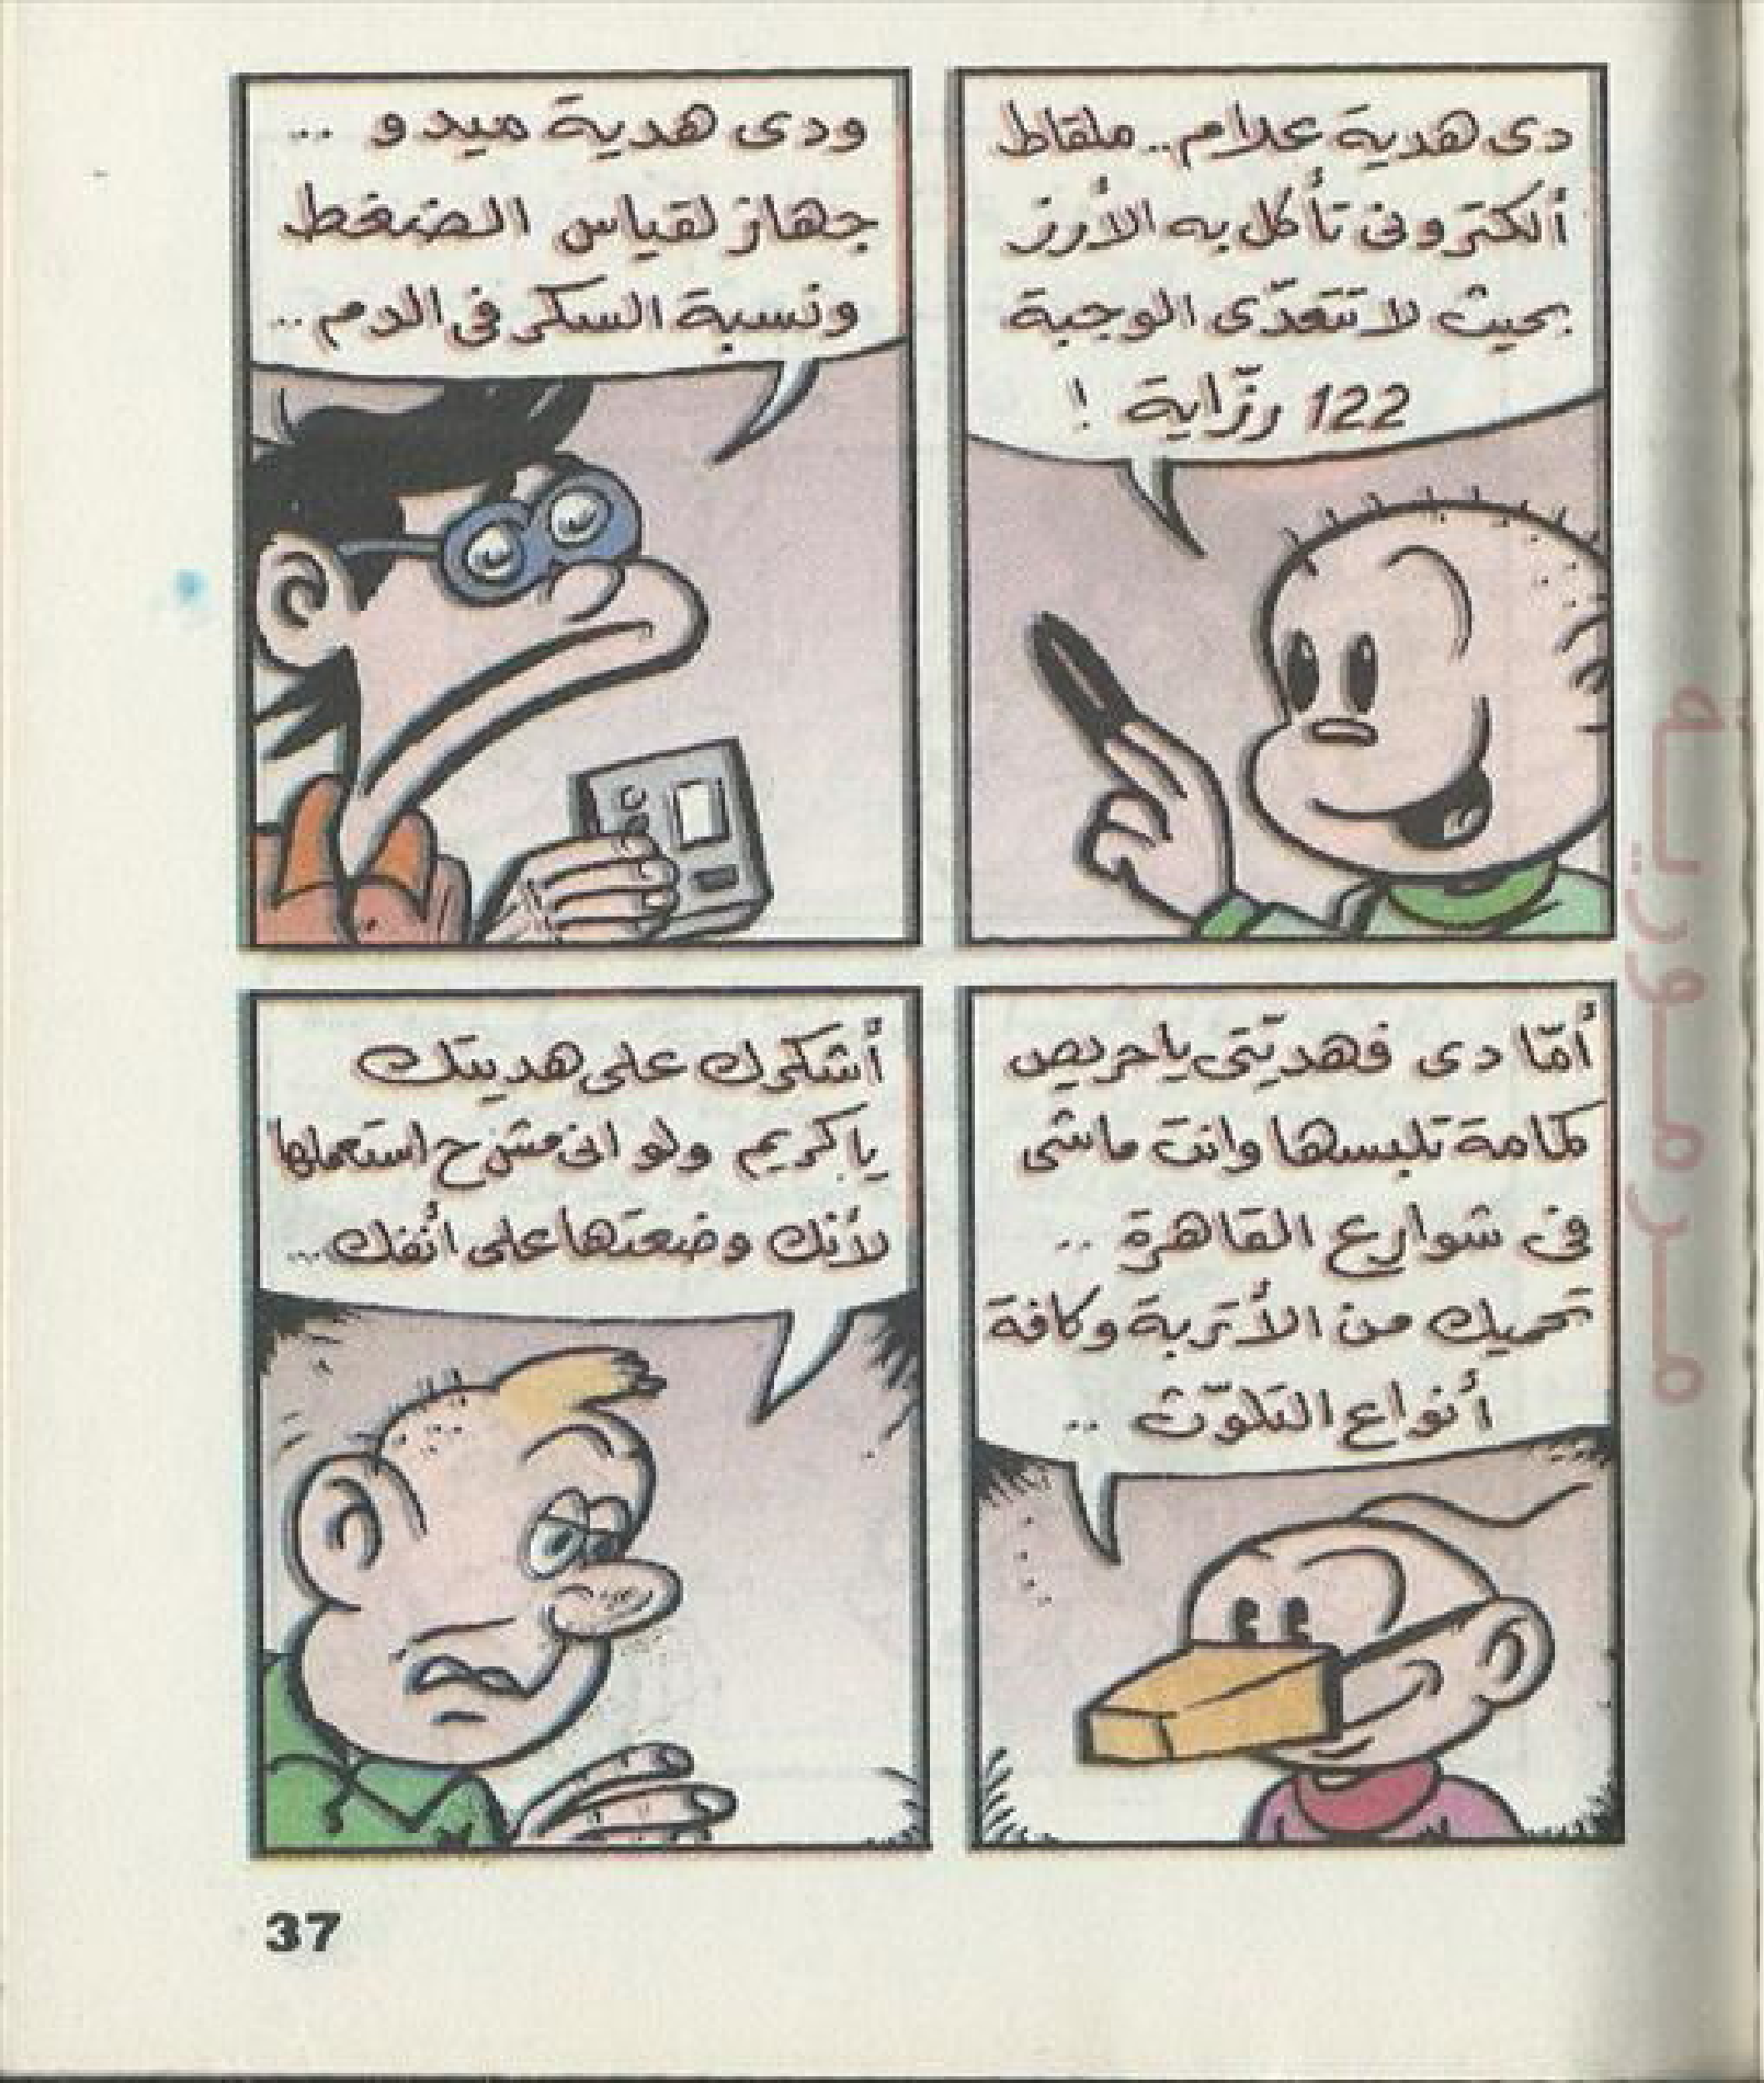 دى هدية علام.. ملقاط
ألكترونى تأكل به الأرز
بحيث لا تتعدّى الوجبة
122 رزّاية !
ودى هدية ميدو ..
جهاز لقياس الضغط
ونسبة السكر فى الدم ..
أمّا دى فهديّتى يا حريص
كمامة تلبسها وانت ماشى
فى شوارع القاهرة ..
تحميك من الأتربة وكافة
أنواع التلوّث ..
أشكرك على هديتك
يا كريم ولو انى مش ح استعملها
لأنك وضعتها على أنفك ...
37